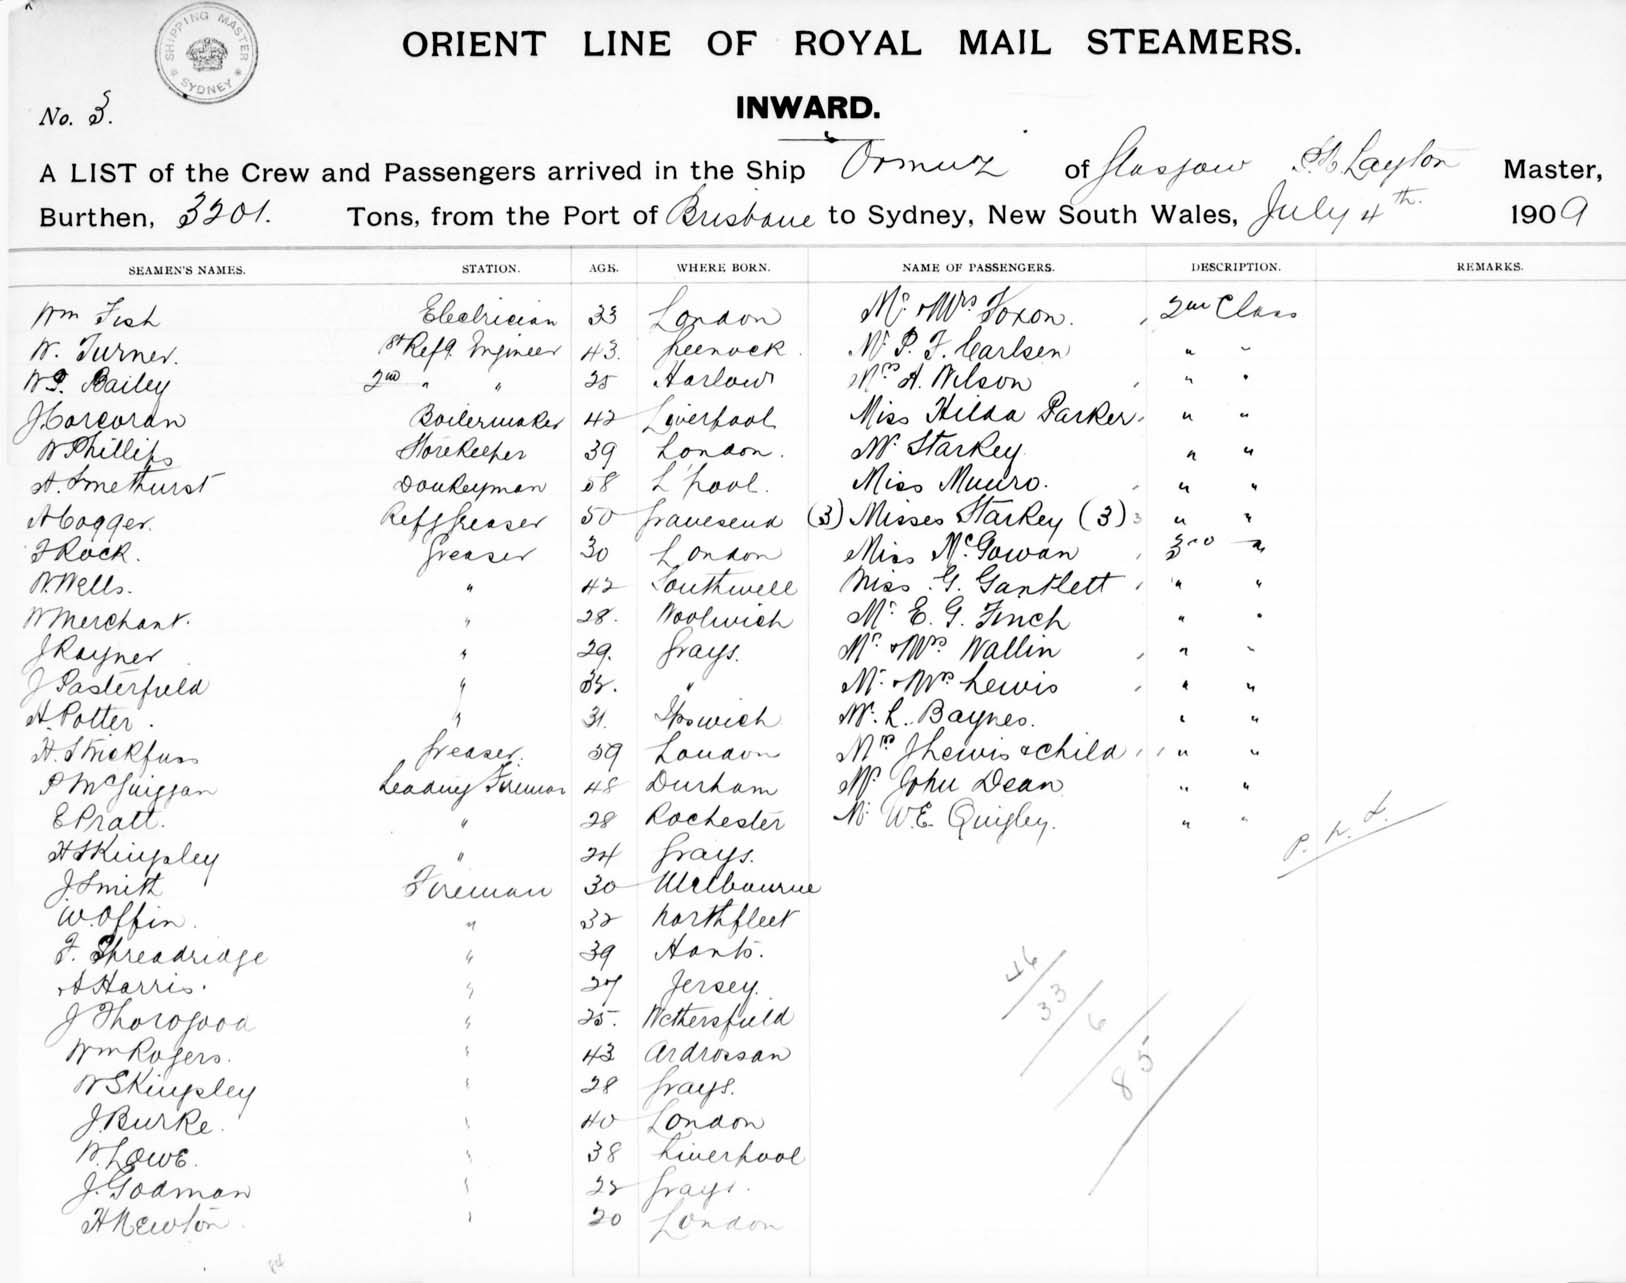 SHIPPING MASTER
SYDNEY
ORIENT LINE OF ROYAL MAIL STEAMERS.
No. 3.
INWARD.
A LIST of the Crew and Passengers arrived in the Ship Ormuz of Glasgow Layton Master,
Burthen, 3201. Tons, from the Port of Brisbane to Sydney, New South Wales, July 4th. 1909
SEAMEN'S NAMES. STATION. AGE. WHERE BORN. NAME OF PASSENGERS. DESCRIPTION. REMARKS.
Wm Fish Electrician 33 London Mr & Mrs Foxon. 2nd Class
W. Turner. 1st Refg. Engineer 43. Greenock. Mr P. F. Carlsen " "
W.P. Bailey 2nd " " 25 Harlow Mrs A. Wilson " "
J Corcoran Boilermaker 42 Liverpool Miss Hilda Parker " "
W Phillips Storekeeper 39 London. Mr Starkey " "
A. Smethurst Donkeyman 58 L'pool. Miss Munro. " "
A Cogger. Refg Greaser 50 Gravesend (3) Misses Starkey (3) 3 " "
F Rock. Greaser 30 London Miss McGowan 3rd "
W. Wells. " 42 Southwell Miss G. Gantlett " "
W Merchant. " 28. Woolwich Mr E. G. Finch " "
J Rayner " 29. Grays. Mr & Mrs Wallin " "
J Pasterfield " 32. " Mr & Mrs Lewis " "
A. Potter. " 31. Ipswich Mr L. Baynes. " "
H. Strickfuss Greaser. 39 London Mrs J Lewis & child " "
P McGuiggan Leading Fireman 48 Durham Mr John Dean " "
E Pratt. " 28 Rochester Mr W.E. Quigley. " "
H S Kingsley " 24 Grays.
J. Smith Fireman 30 Melbourne
W. Offin. " 32 Northfleet
F. Threadridge " 39 Hants.
A Harris. " 27 Jersey.
J Thorogood " 25. Wethersfield
Wm Rogers. " 43 Ardrossan
W S Kingsley " 28 Grays.
J. Burke. " 40 London
W. Lowe. " 38 Liverpool
J. Godman " 22 Grays.
H Newton. " 20 London
46
33
6
85